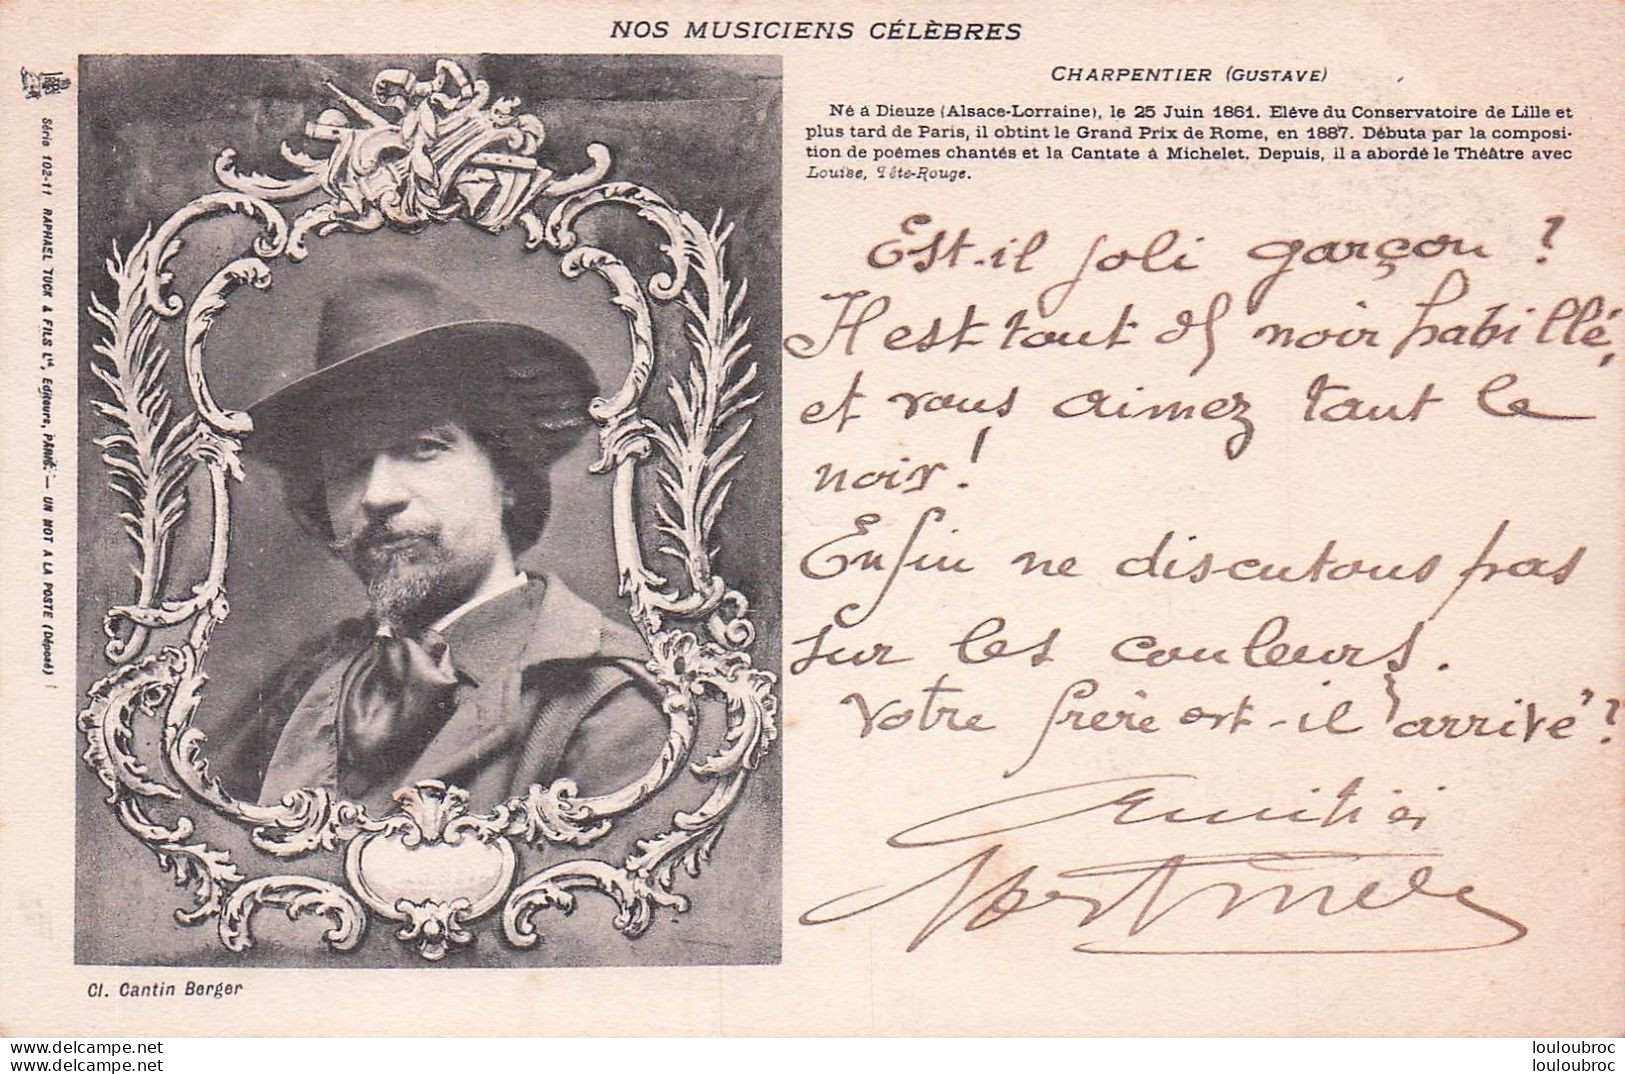 NOS MUSICIENS CÉLÈBRES
CHARPENTIER (GUSTAVE)
Né à Dieuze (Alsace-Lorraine), le 25 Juin 1861. Elève du Conservatoire de Lille et
plus tard de Paris, il obtint le Grand Prix de Rome, en 1887. Débuta par la composi-
tion de poèmes chantés et la Cantate à Michelet. Depuis, il a abordé le Théâtre avec
Louise, Tête-Rouge.
Série 102-11 RAPHAEL TUCK & FILS Ld, Editeurs, PARIS. — UN MOT A LA POSTE (Déposé)
Est-il joli garçon ?
Il est tout de noir habillé,
et vous aimez tant le
noir !
Enfin ne discutons pas
sur les couleurs.
Votre frère est-il arrivé ?
Cl. Cantin Berger
delcampe.net
delcampe.net
louloubroc
louloubroc